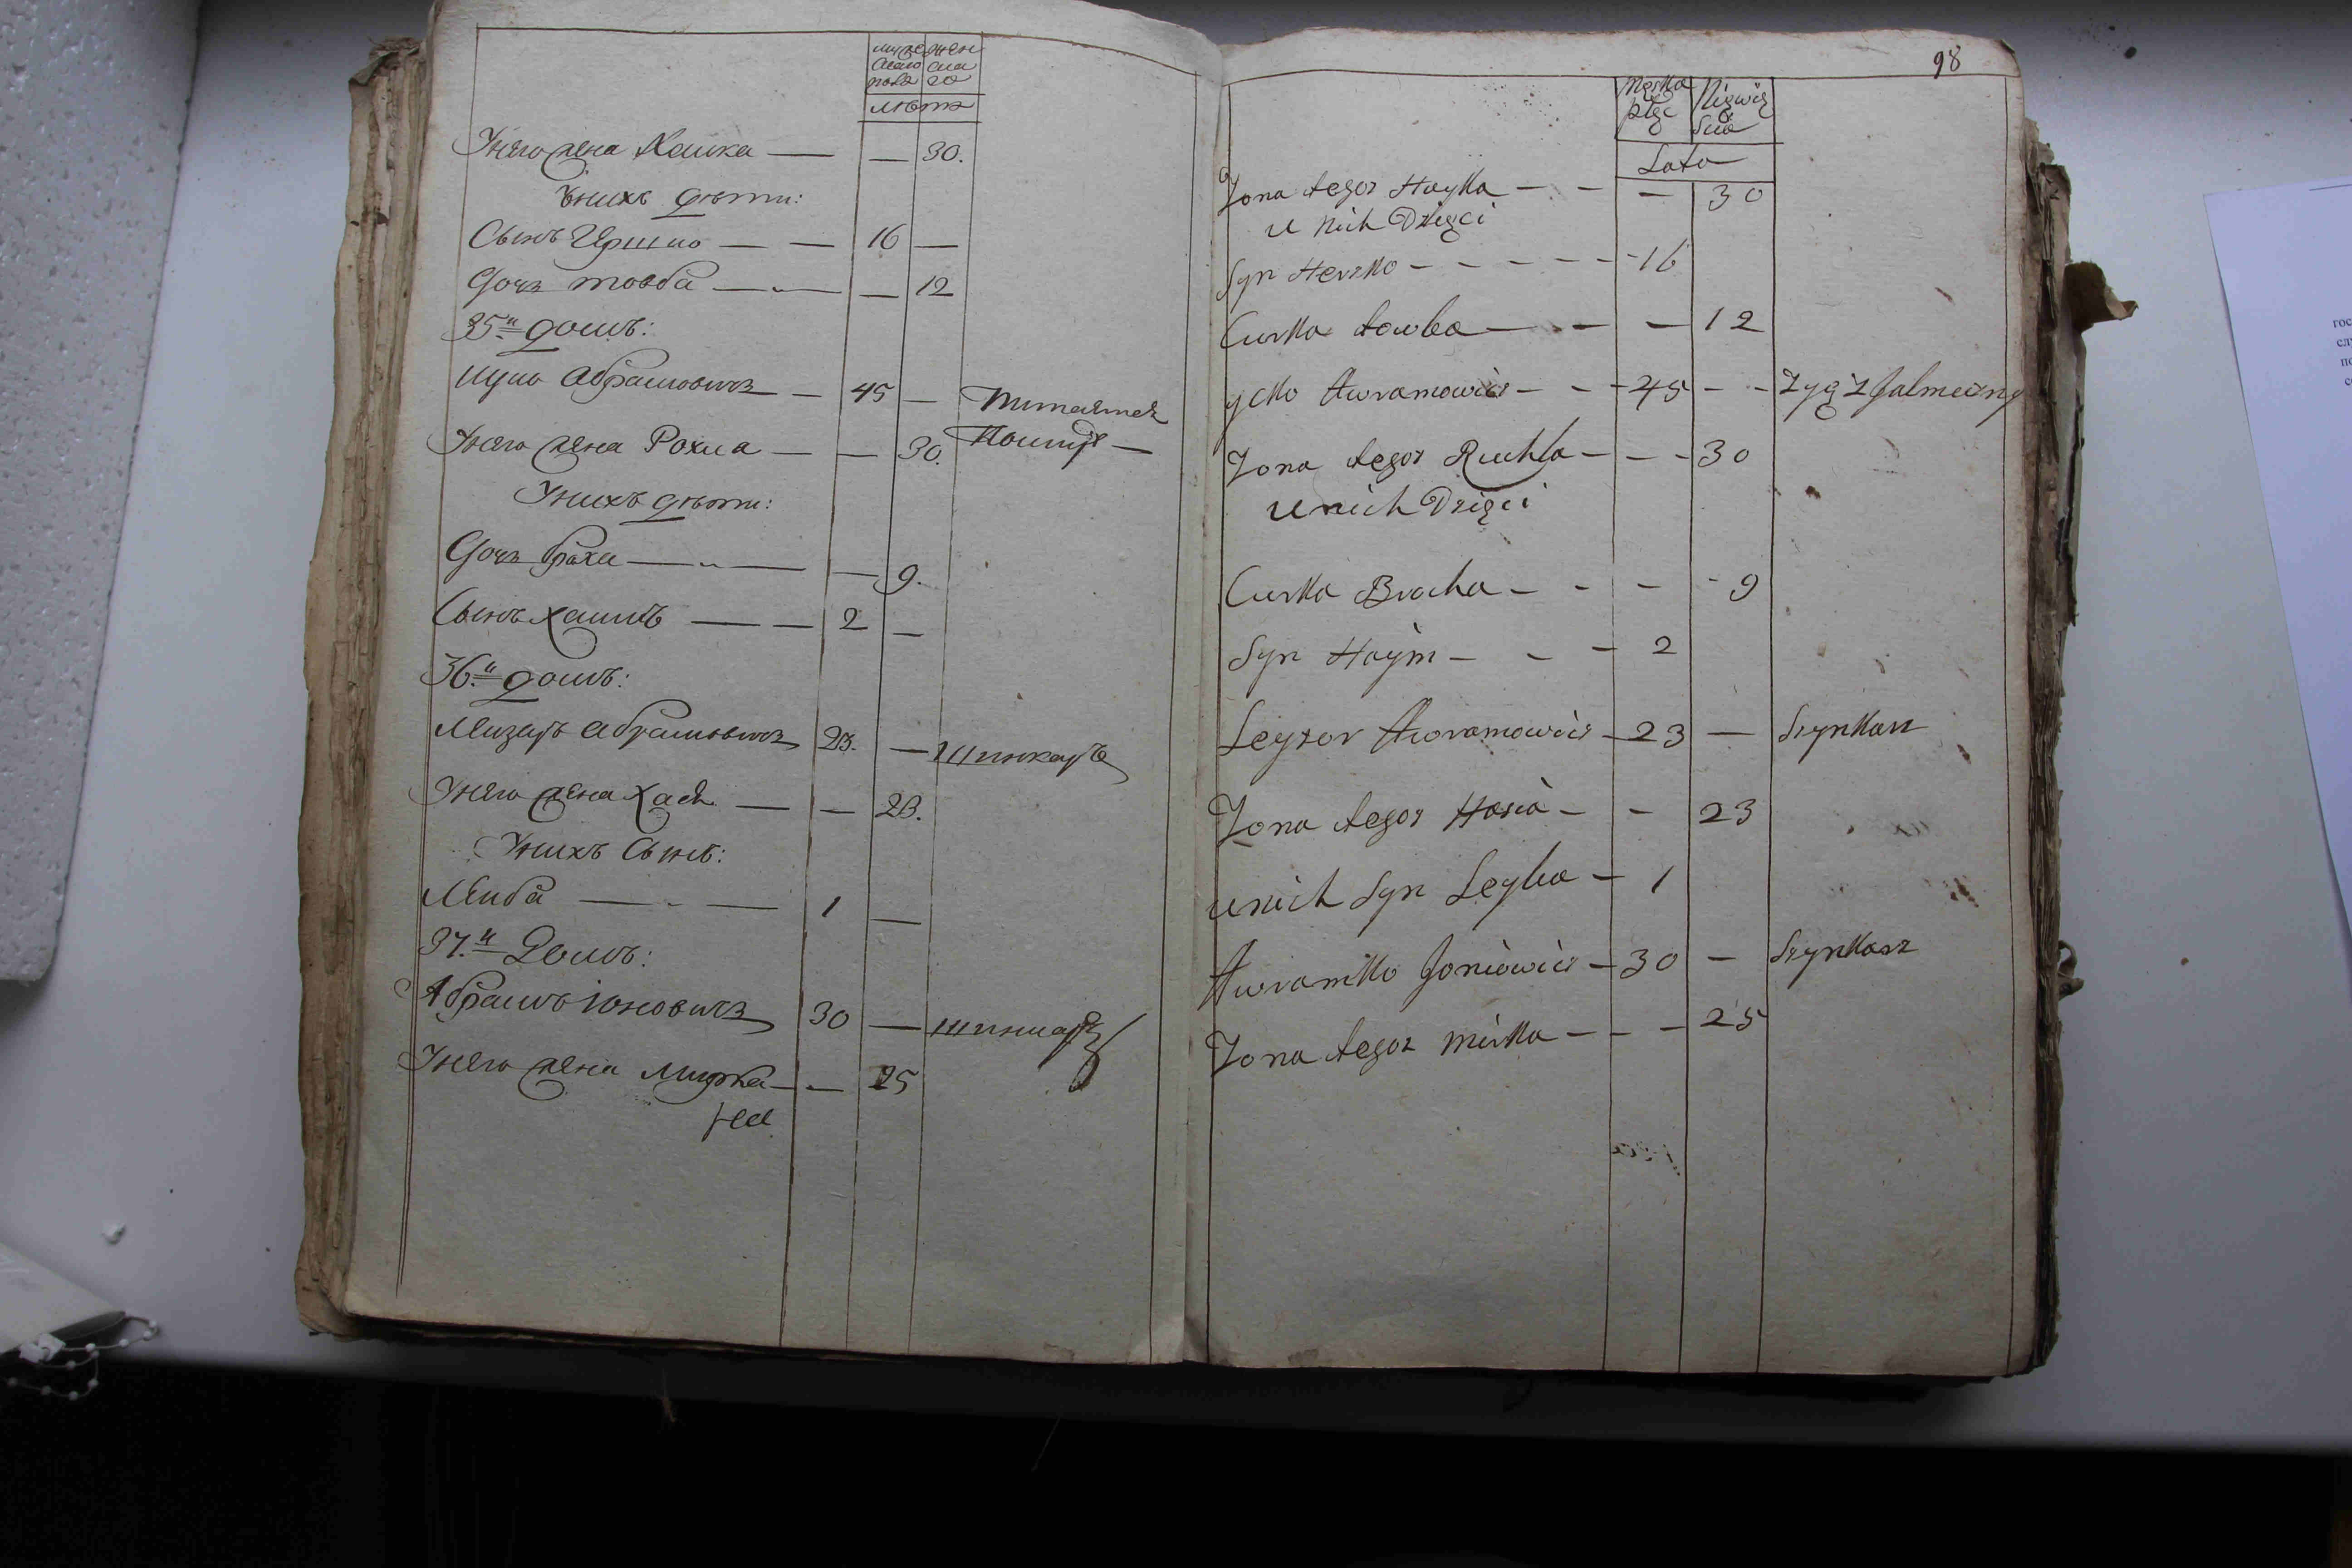 мужескаго пола женскаго
лѣтъ
Унего жена Хаика — — 30.
Унихъ дѣти:
Сынъ Гершко — — 16 —
Дочь товба — — — 12
35.й домъ:
Ицко Абрамовичъ — 45 — Питается
Унего жена Рохла — — 30.
Унихъ дѣти:
Дочь браха — — — 9.
Сынъ хаимъ — — 2 —
36.й домъ:
Леизаръ Абрамовичъ 23. — Шинкаръ
Унего жена Хася — — 23.
Унихъ Сынъ:
Леиба — — 1 —
37.й Домъ:
Абрамъ Іоновичъ 30 — шинкаръ
Унего жена Мирка — — 25
98
Męska płec Niewieścia
Lata
Zona tegoz Hayka — — — 30
u nich Dzięci
Syn Herzko - - - - - 16
Curka towba — - - — 12
ycko Awramowicz - - - 45 - - Zyią z Jalmuzny
Zona tegoz Ruchla - - - 30
u nich Dzięci
Curka Bracha - - - - 9
Syn Haym - - - 2
Leyzor Awramowicz - 23 — Szynkarz
Zona tegoz Hasia - - 23
u nich Syn Leyba - 1
Awramko Joniowicz - 30 - Szynkarz
Zona tegoz Mirka - - - 25